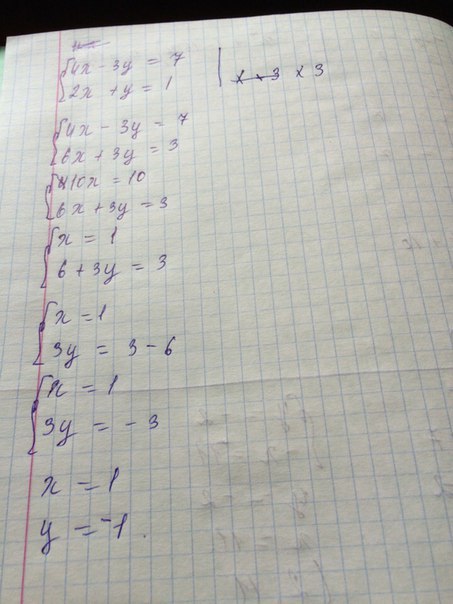 4x - 3y = 7
2x + y = 1 | × 3
4x - 3y = 7
6x + 3y = 3
10x = 10
6x + 3y = 3
x = 1
6 + 3y = 3
x = 1
3y = 3 - 6
x = 1
3y = - 3
x = 1
y = -1.